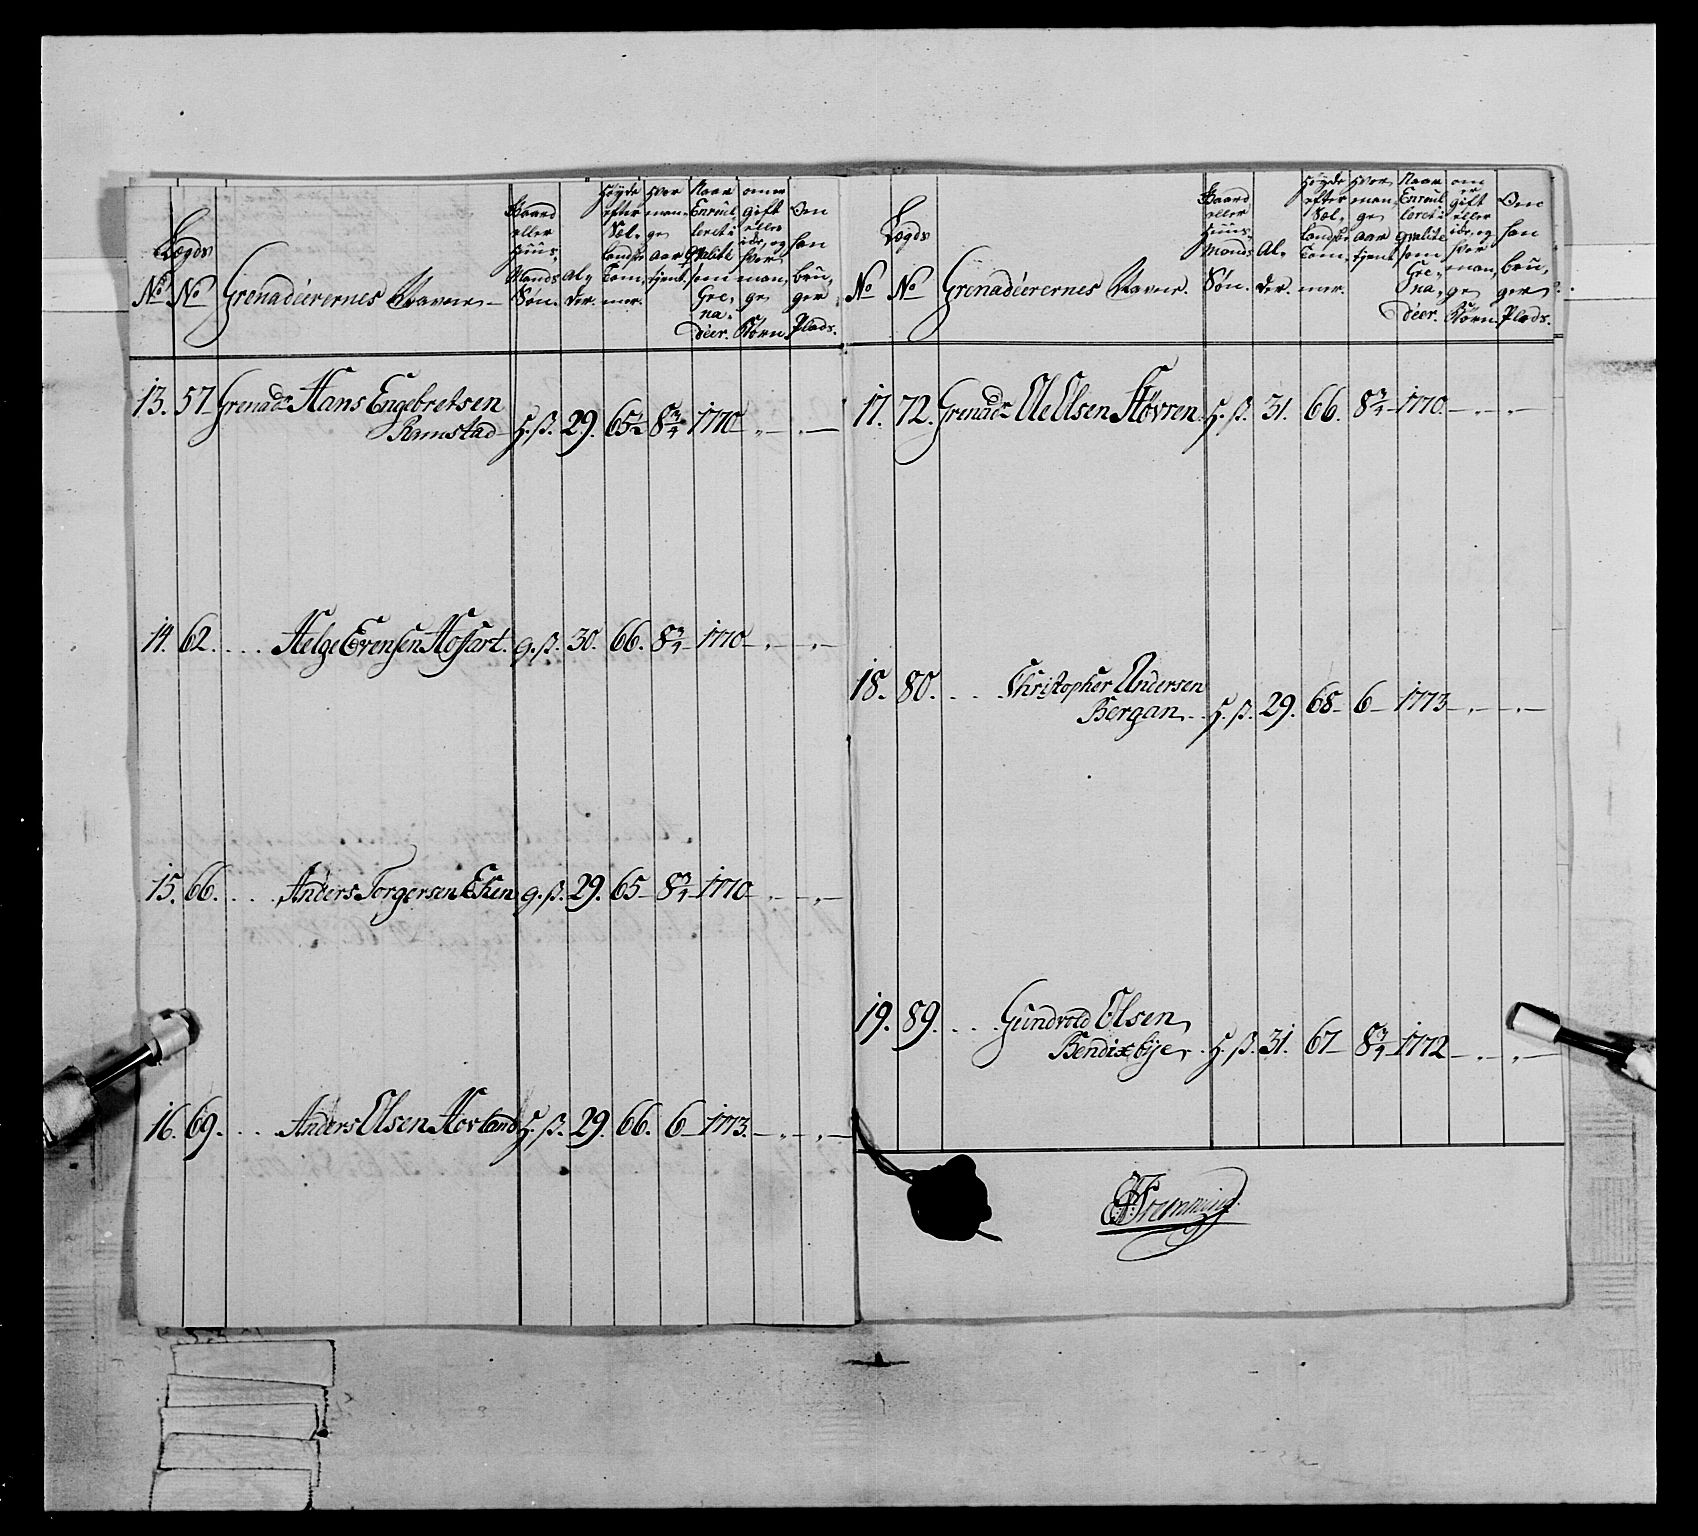 Lægds
No No Grenadéerernes Navne
Gaard eller Huus, Mands Søn.
Al, der.
Høyde efter Sæl, lands Tom, mer.
Hvor man, ge aar tjent
Naar Enroul, leret i qvalité som Gre, na, déer.
om er gift eller ide, og hvor man, ge Børn
Den han bru, ger Plads.
13. 57. Grenadr Hans Engebretsen
Ramstad H.ß. 29. 65½ 8¾ 1770
14. 62. Helge Evensen Hofsart. g.ß. 30. 66. 8¾ 1770
15. 66. Anders Torgersen Eken g.ß. 29. 65 8¾ 1770
16. 69. Anders Olsen Hovland H.ß. 29. 66. 6 1773.
Lægds
No No Grenadéerernes Navne.
Gaard eller Huus, Mands Søn.
Al, der.
Høyde efter Sæl, lands Tom, mer.
Hvor man, ge aar tjent
Naar Enroul, leret i qvalité som Gre, na, déer.
om er gift eller ide, og hvor man, ge Børn
Den han bru, ger Plads.
17. 72. Grenadr Ole Olsen Støvren H.ß. 31. 66. 8¾ 1770
18. 80. Christopher Andersen
Bergan H.ß. 29. 68 6 1773
19. 89. Gundvold Olsen
Bendixbye H.ß. 31. 67 8¾ 1772